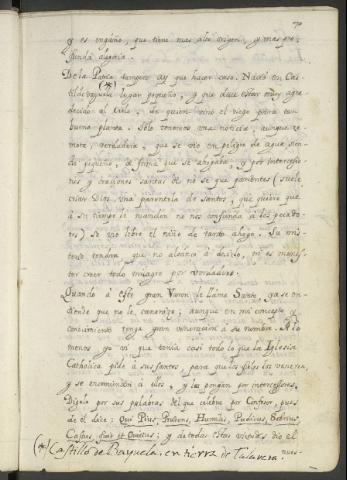 70
y es ingenio, que tiene mas alto origen, y mas pro-
funda alegria.
De la Patria tampoco ay que hacer caso. Nació en Cas-
(*)
til de vayuela lugar pequeño, y que deve estar muy agra-
decido al Cielo, de quien vino el riego para tan
buena planta. Solo tenemos una noticia, aunque re-
mota, verdadera, que se vio en peligro de agua sien-
do pequeño, de forma que se ahogaba, y por intercessio-
nes y oraciones santas de no se que parientes (suele
criar Dios una parentela de santos, que quiere que
á su tiempo le manden no nos confunda á los pecado-
res) se vio libre el niño de tanto ahogo. Su mis-
terio tendra que no alcanzo á decirlo, ni es menes-
ter creer todo milagro por verdadero.
Quando á este gran Varon le llamo Santo, ya se en-
tiende que no le canonizo; aunque en mi concepto y
conocimiento tenga gran veneracion á su nombre. A lo
menos yo vi que tenia casi todo lo que la Iglesia
Catholica pide á sus santos, para que los fieles los veneren,
y se encomienden á ellos, y los pongan por intercessores.
Digalo por sus palabras del que celebra por Confesor, pues
de él dice: Qui Pius, Prudens, Humilis, Pudicus, Sobrius,
Castus, fuit et Quietus; y de todas estas virtudes dio el
nues-
(*) Castillo de Bayuela, en tierra de Talavera.